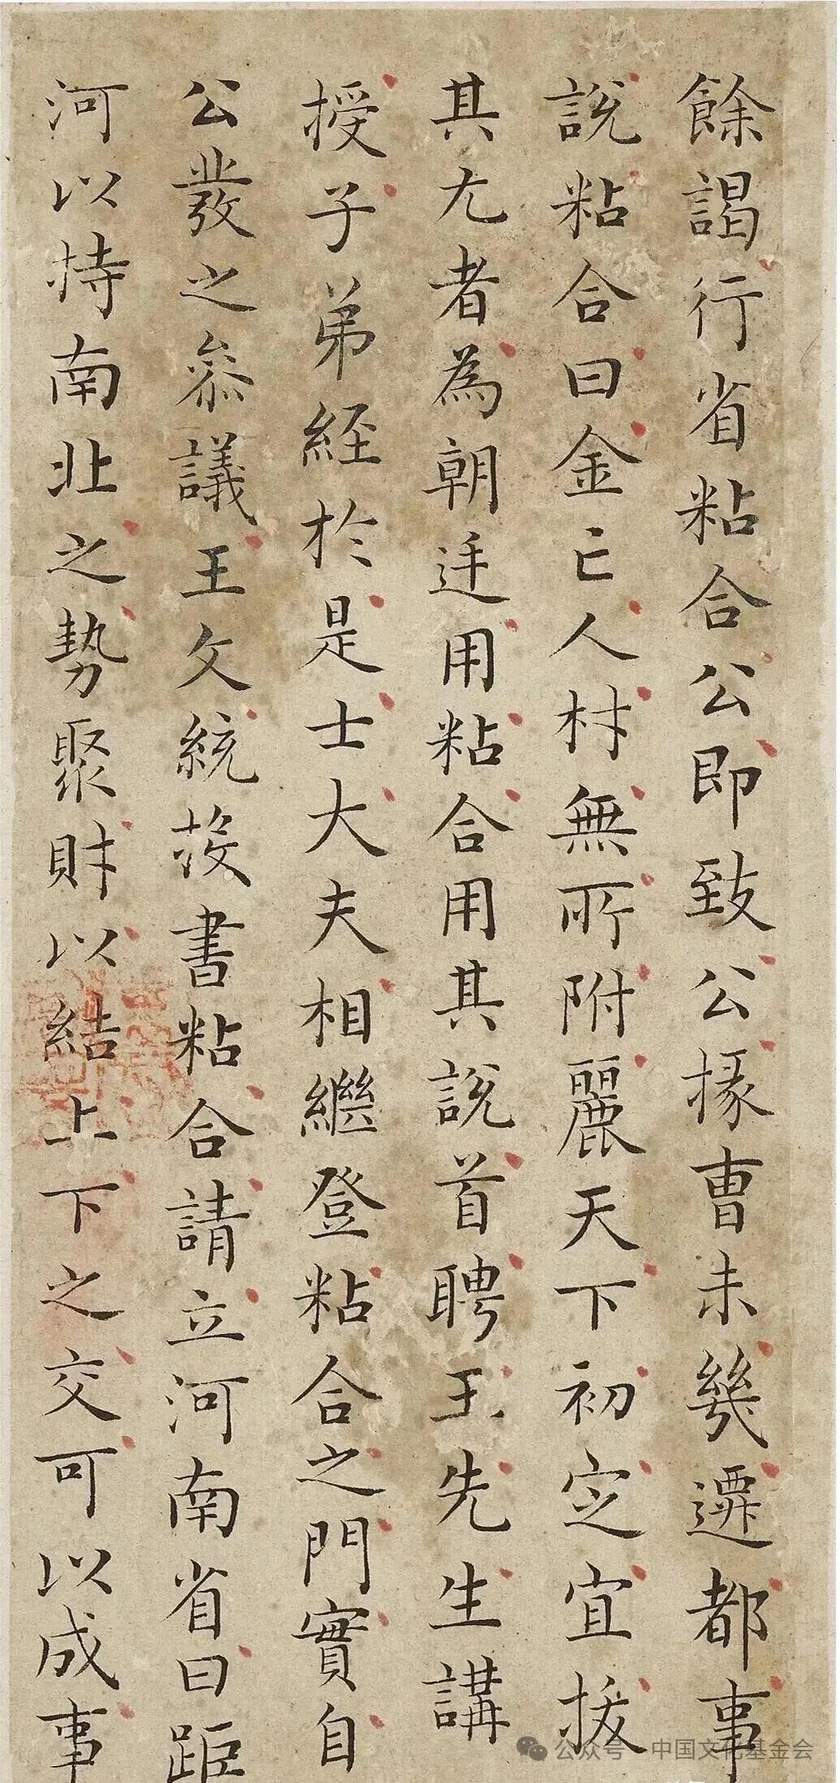 餘謁行省粘合公即致公掾曹未幾遷都事
說粘合曰金亡人材無所附麗天下初定宜拔
其尤者為朝廷用粘合用其說首聘王先生講
授子弟經於是士大夫相繼登粘合之門實自
公發之叅議王文統投書粘合請立河南省曰距
河以持南北之勢聚財以結上下之交可以成事
公众号 · 中国文化基金会